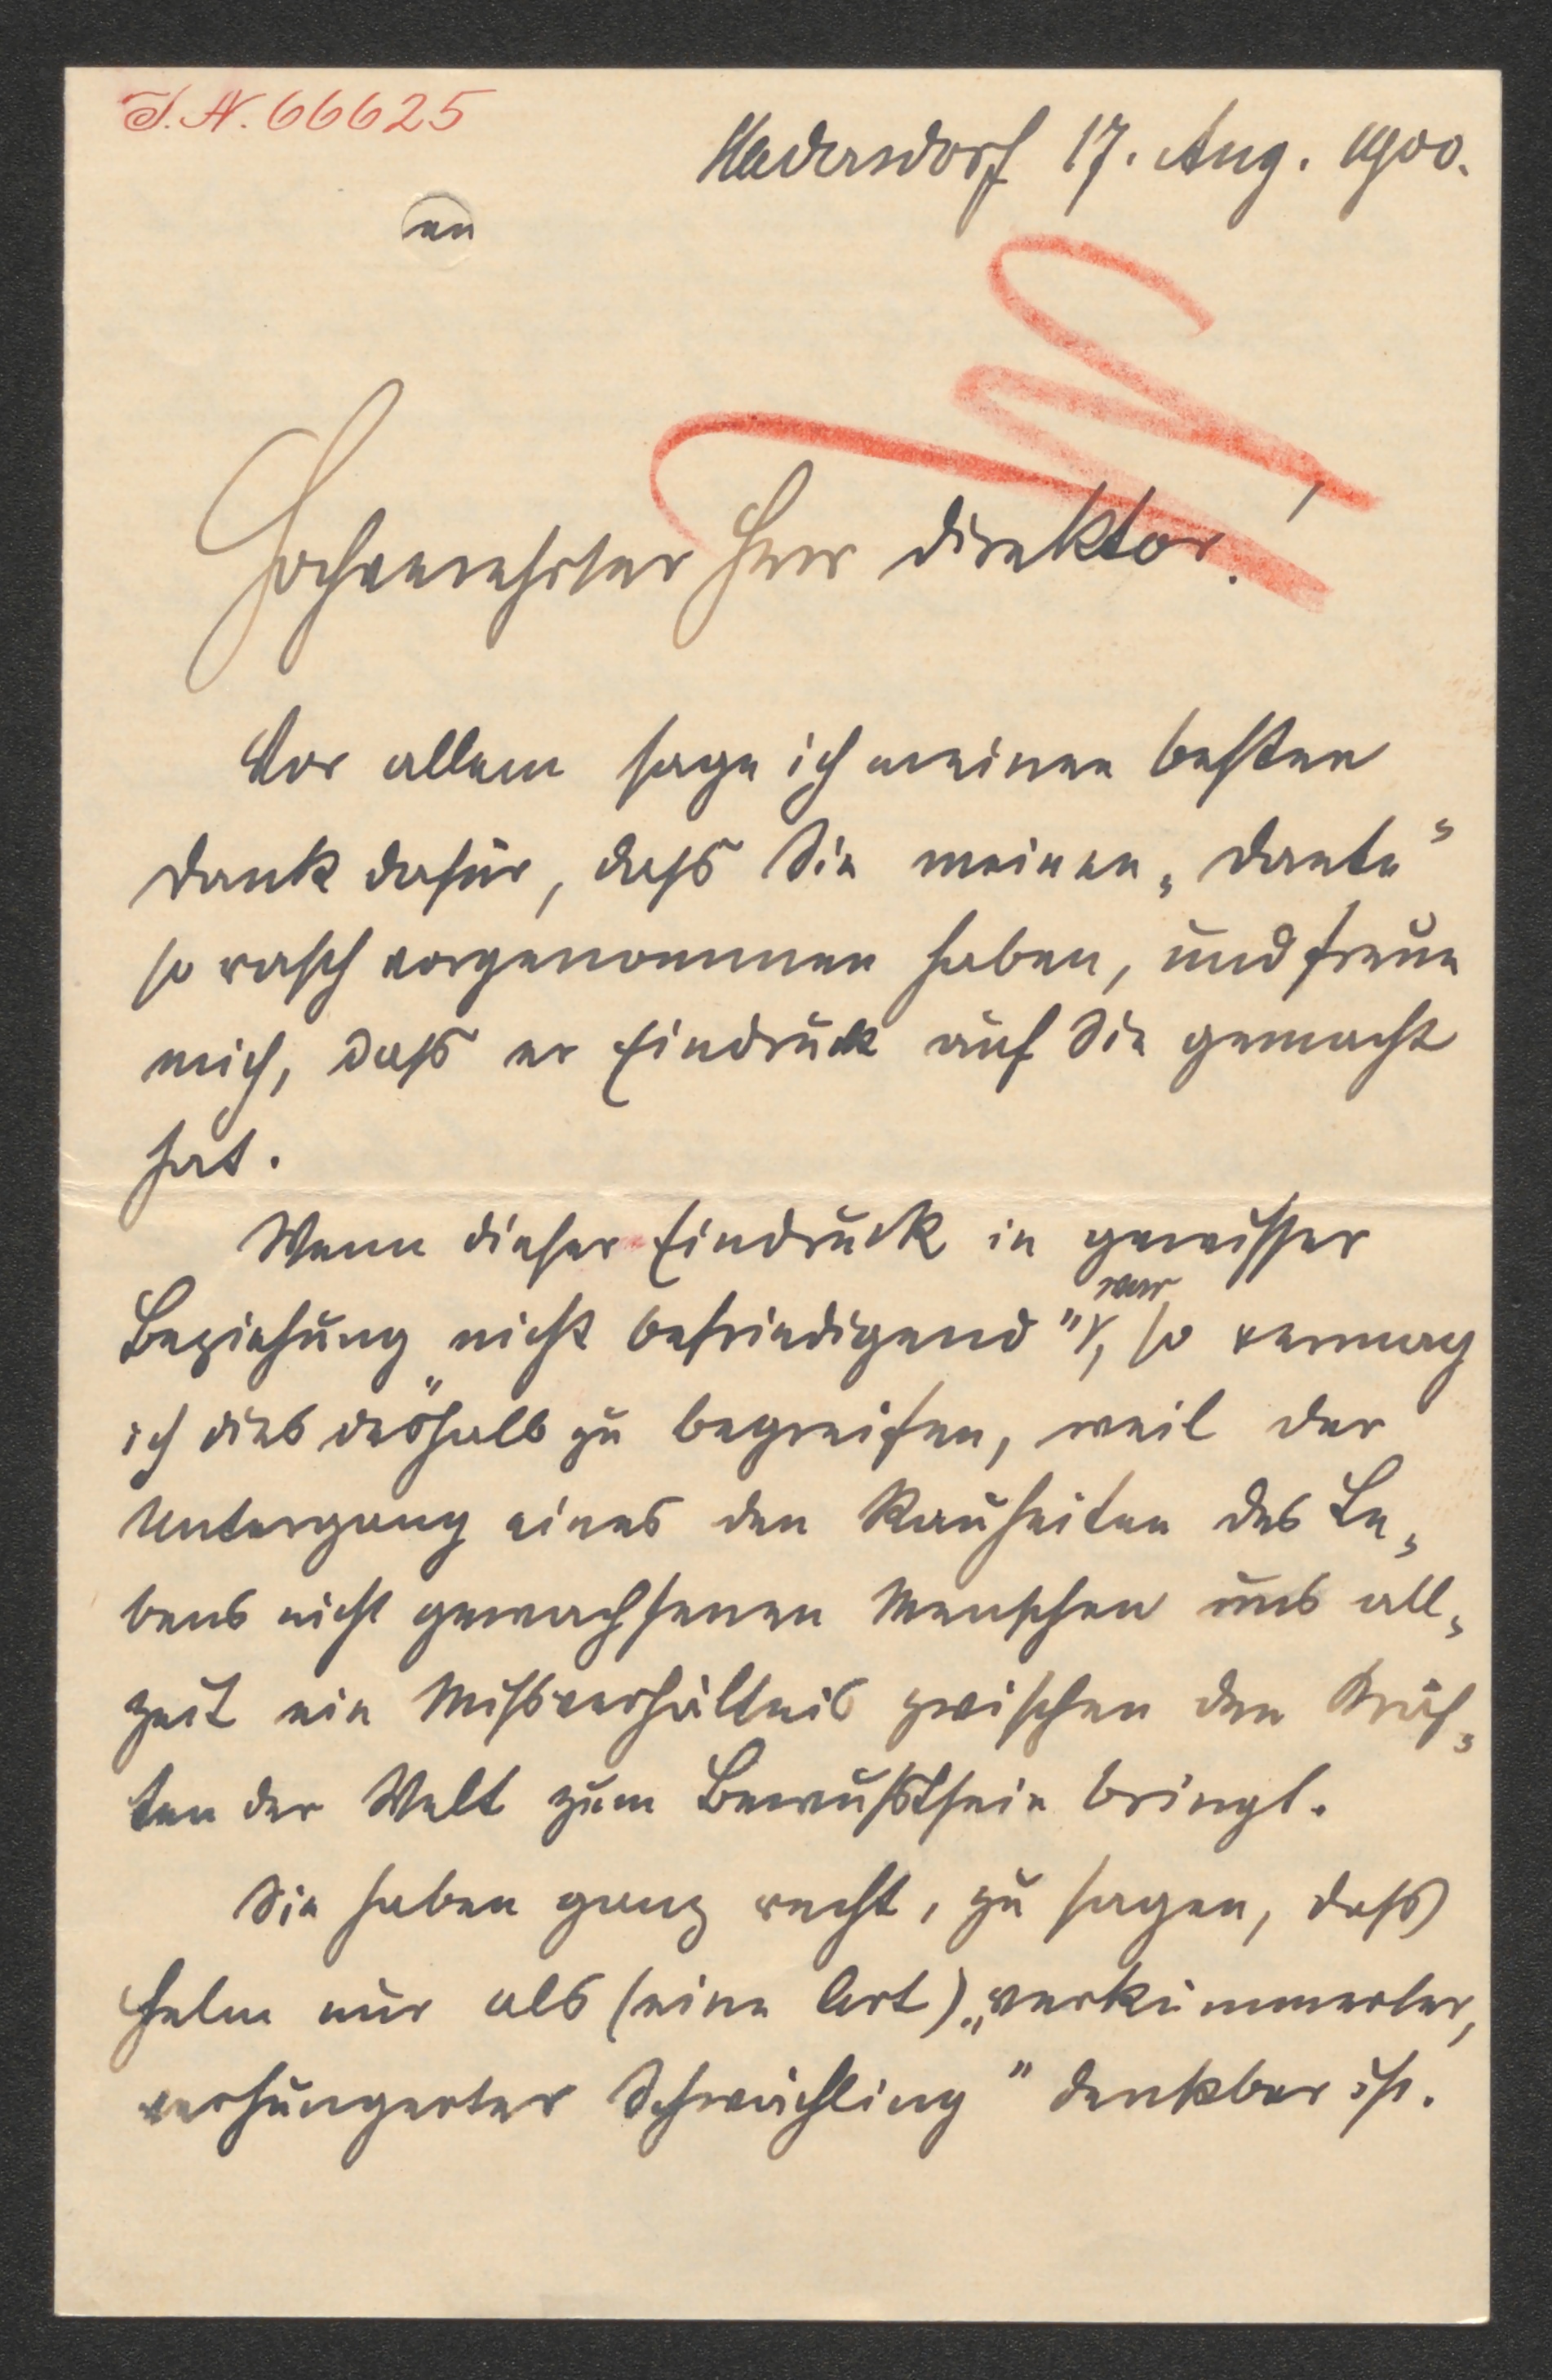 I. N. 66625
Hadersdorf 17. Aug. 1900.
an
Hochverehrter Herr Direktor!
Vor allem sage ich meinen besten
Dank dafür, dass Sie meinen „Dante“
so rasch vorgenommen haben, und freue
mich, dass er Eindruck auf Sie gemacht
hat.
Wenn dieser Eindruck in gewisser
war
Beziehung „nicht befriedigend“, so vermag
ich dies deshalb zu begreifen, weil der
Untergang eines den Rauheiten des Le-
bens nicht gewachsenen Menschen uns all-
zeit ein Missverhältnis zwischen den Kräf-
ten der Welt zum Bewusstsein bringt.
Sie haben ganz recht, zu sagen, dass
Helm nur als (eine Art) „verkümmerter,
verhungerter Schwächling“ denkbar ist.